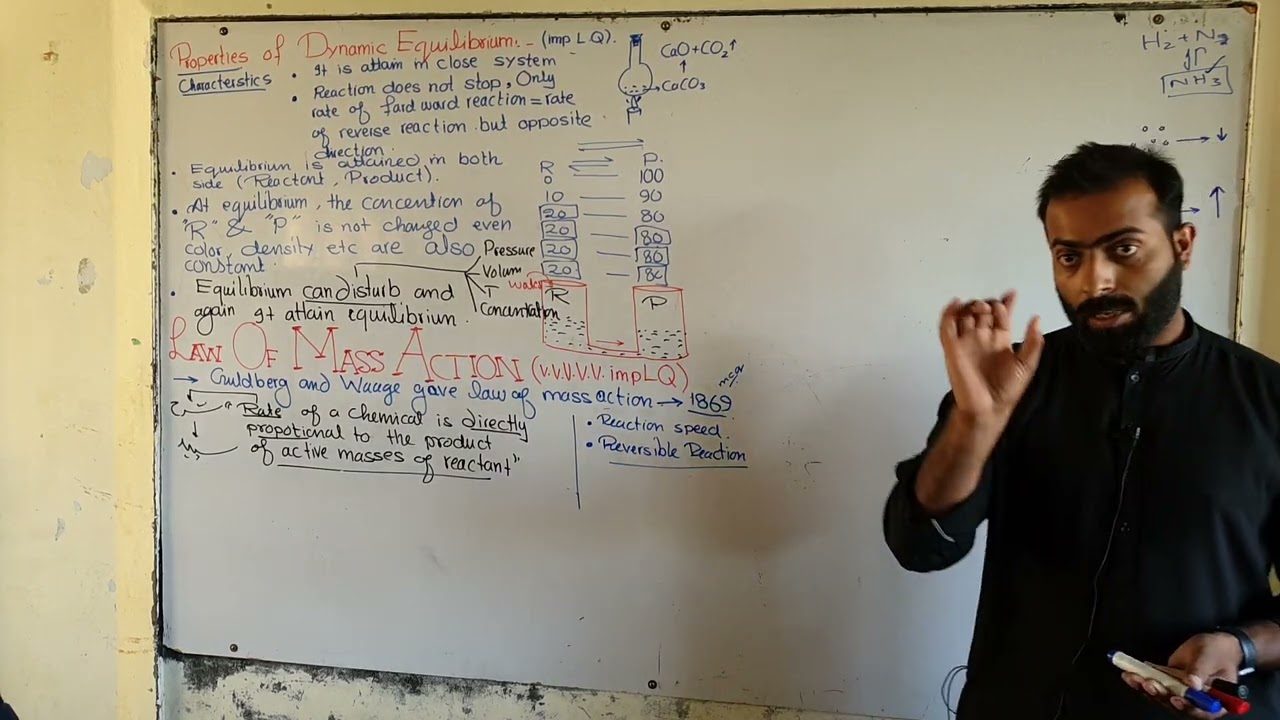 Properties of Dynamic Equilibrium:- (imp L Q).
Characterstics
• It is attain in close system
• Reaction does not stop, Only
rate of fardward reaction = rate
of reverse reaction but opposite
direction.
• Equilibrium is attained in both
side (Reactant, Product).
• At equilibrium, the concention of
"R" & "P" is not changed even
color, density etc are also
constant.
• Equilibrium can disturb and
again it attain equilibrium.
Pressure
Volum
T
Concentration
CaO + CO₂↑
↑
CaCO₃
R ⇌ P.
0 100
10 — 90
20 — 80
20 — 80
20 80
20 — 80
water
R P
LAW OF MASS ACTION (v.v.v.v.v. imp LQ)
→ Guldberg and Waage gave law of mass action → 1869
mcq
"Rate of a chemical is directly
propotional to the product
of active masses of reactant"
• Reaction speed.
• Reversible Reaction
H₂ + N₂
NH₃
→ ↓
→ ↑